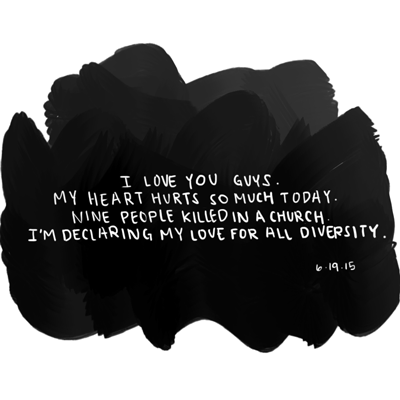 I LOVE YOU GUYS.
MY HEART HURTS SO MUCH TODAY.
NINE PEOPLE KILLED IN A CHURCH.
I'M DECLARING MY LOVE FOR ALL DIVERSITY.
6.19.15